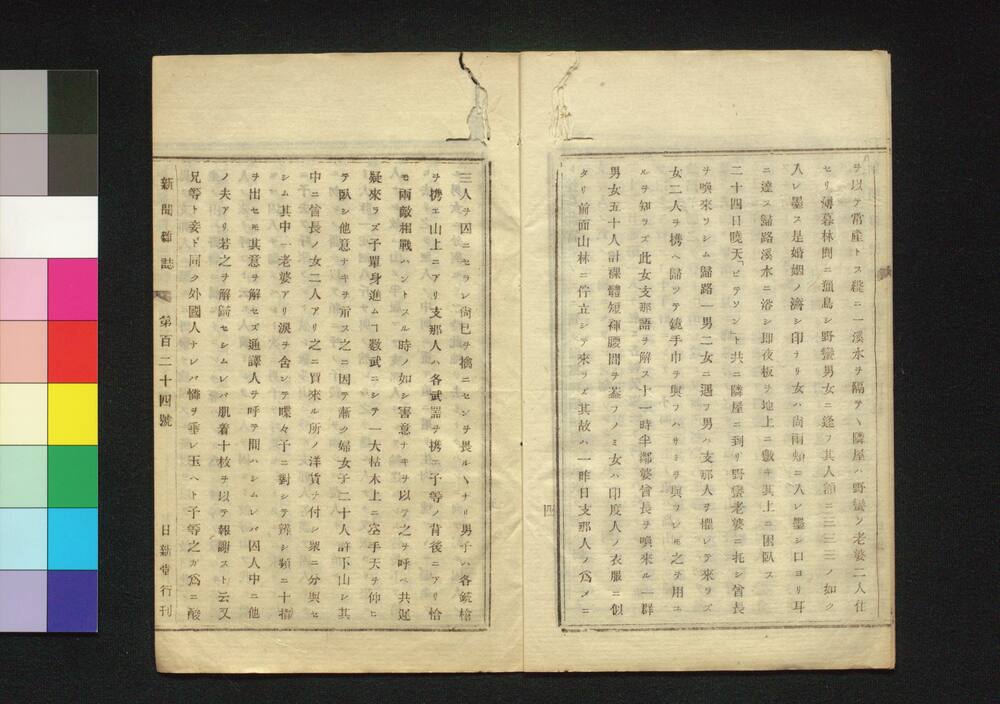 ヲ以テ常産トス繞ニ一溪水ヲ隔テヽ隣屋ハ野蠻ノ老婆二人住
セリ薄暮林間ニ獵鳥シ野蠻男女ニ逢フ其人額ニ三三三ノ如ク
入レ墨ス是婚姻ノ濟シ印ナリ女ハ尙兩頰ニ入レ墨シ口ヨリ耳
ニ達ス歸路溪水ニ浴シ即夜板ヲ地上ニ敷キ其上ニ困臥ス
二十四日曉天「ビテソン」ト共ニ隣屋ニ到リ野蠻老婆ニ托シ酋長
ヲ喚來ラシム歸路一男二女ニ遇フ男ハ支那人ヲ懼レテ來ラズ
女二人ヲ携ヘ歸ツテ鏡手巾ヲ與フハサミヲ與フレ𪜈之ヲ用ユ
ルヲ知ラズ此女支那語ヲ解ス十一時半鄰婆酋長ヲ喚來ル一群
男女五十人計裸體短褌腰間ヲ蓋フノミ女ハ印度人ノ衣服ニ似
タリ前面山林ニ佇立シテ來ラズ其故ハ一昨日支那人ノ爲メニ
四
三人ヲ囚ニセラレ尙己ヲ擒ニセンヲ畏ルヽナリ男子ハ各銃槍
ヲ携エ山上ニアリ支那人ハ各武器ヲ携エ予等ノ背後ニアリ恰
モ兩敵相戰ハントスル時ノ如シ害意ナキヲ以テ之ヲ呼ベ共遲
疑來ラズ予單身進ムヿ數武ニシテ一大枯木上ニ空手天ヲ仰ヒ
テ臥シ他意ナキヲ示ス之ニ因テ漸ク婦女子二十人許下山シ其
中ニ酋長ノ女二人アリ之ニ買來ル所ノ洋貨ヲ付シ衆ニ分與セ
シム其中一老婆アリ淚ヲ含ンテ喋々予ニ對シテ辨シ頻ニ十指
ヲ出セ𪜈其意ヲ解セズ通譯人ヲ呼テ問ハシムレバ囚人中ニ他
ノ夫アリ若之ヲ解歸セシムレバ肌着十枚ヲ以テ報謝スト云又
兄等ト妾ト同ク外國人ナレバ憐ヲ垂レ玉ヘト予等之ガ爲ニ酸
新聞雜誌 第百二十四號 日新堂行刊